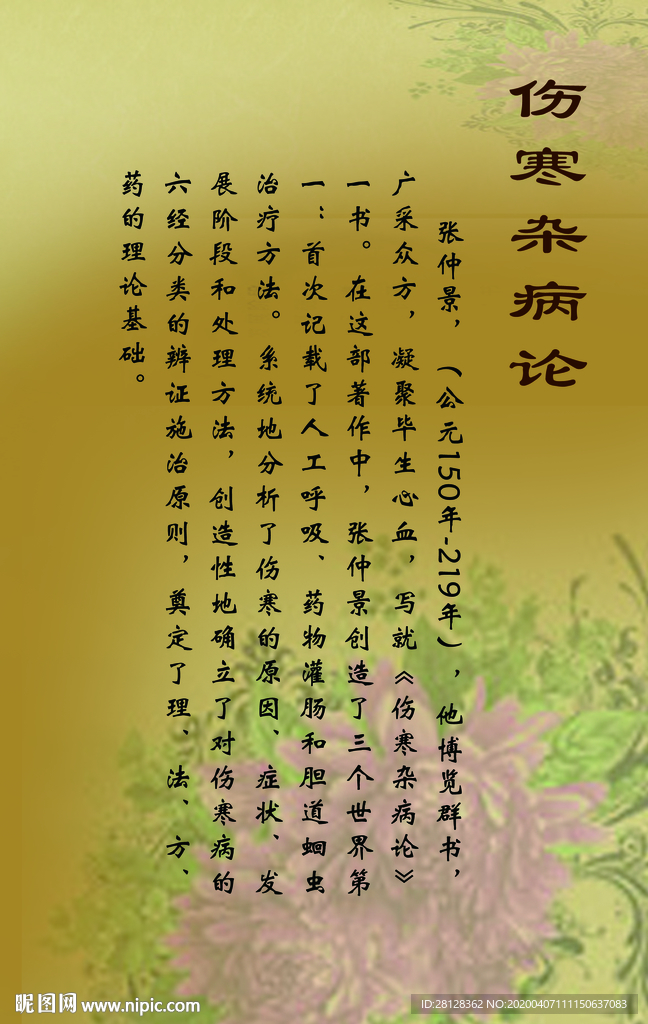 伤寒杂病论
张仲景，（公元150年-219年），他博览群书，
广采众方，凝聚毕生心血，写就《伤寒杂病论》
一书。在这部著作中，张仲景创造了三个世界第
一：首次记载了人工呼吸、药物灌肠和胆道蛔虫
治疗方法。系统地分析了伤寒的原因、症状、发
展阶段和处理方法，创造性地确立了对伤寒病的
六经分类的辨证施治原则，奠定了理、法、方、
药的理论基础。
昵图网 www.nipic.com
ID:28128362 NO:20200407111150637083